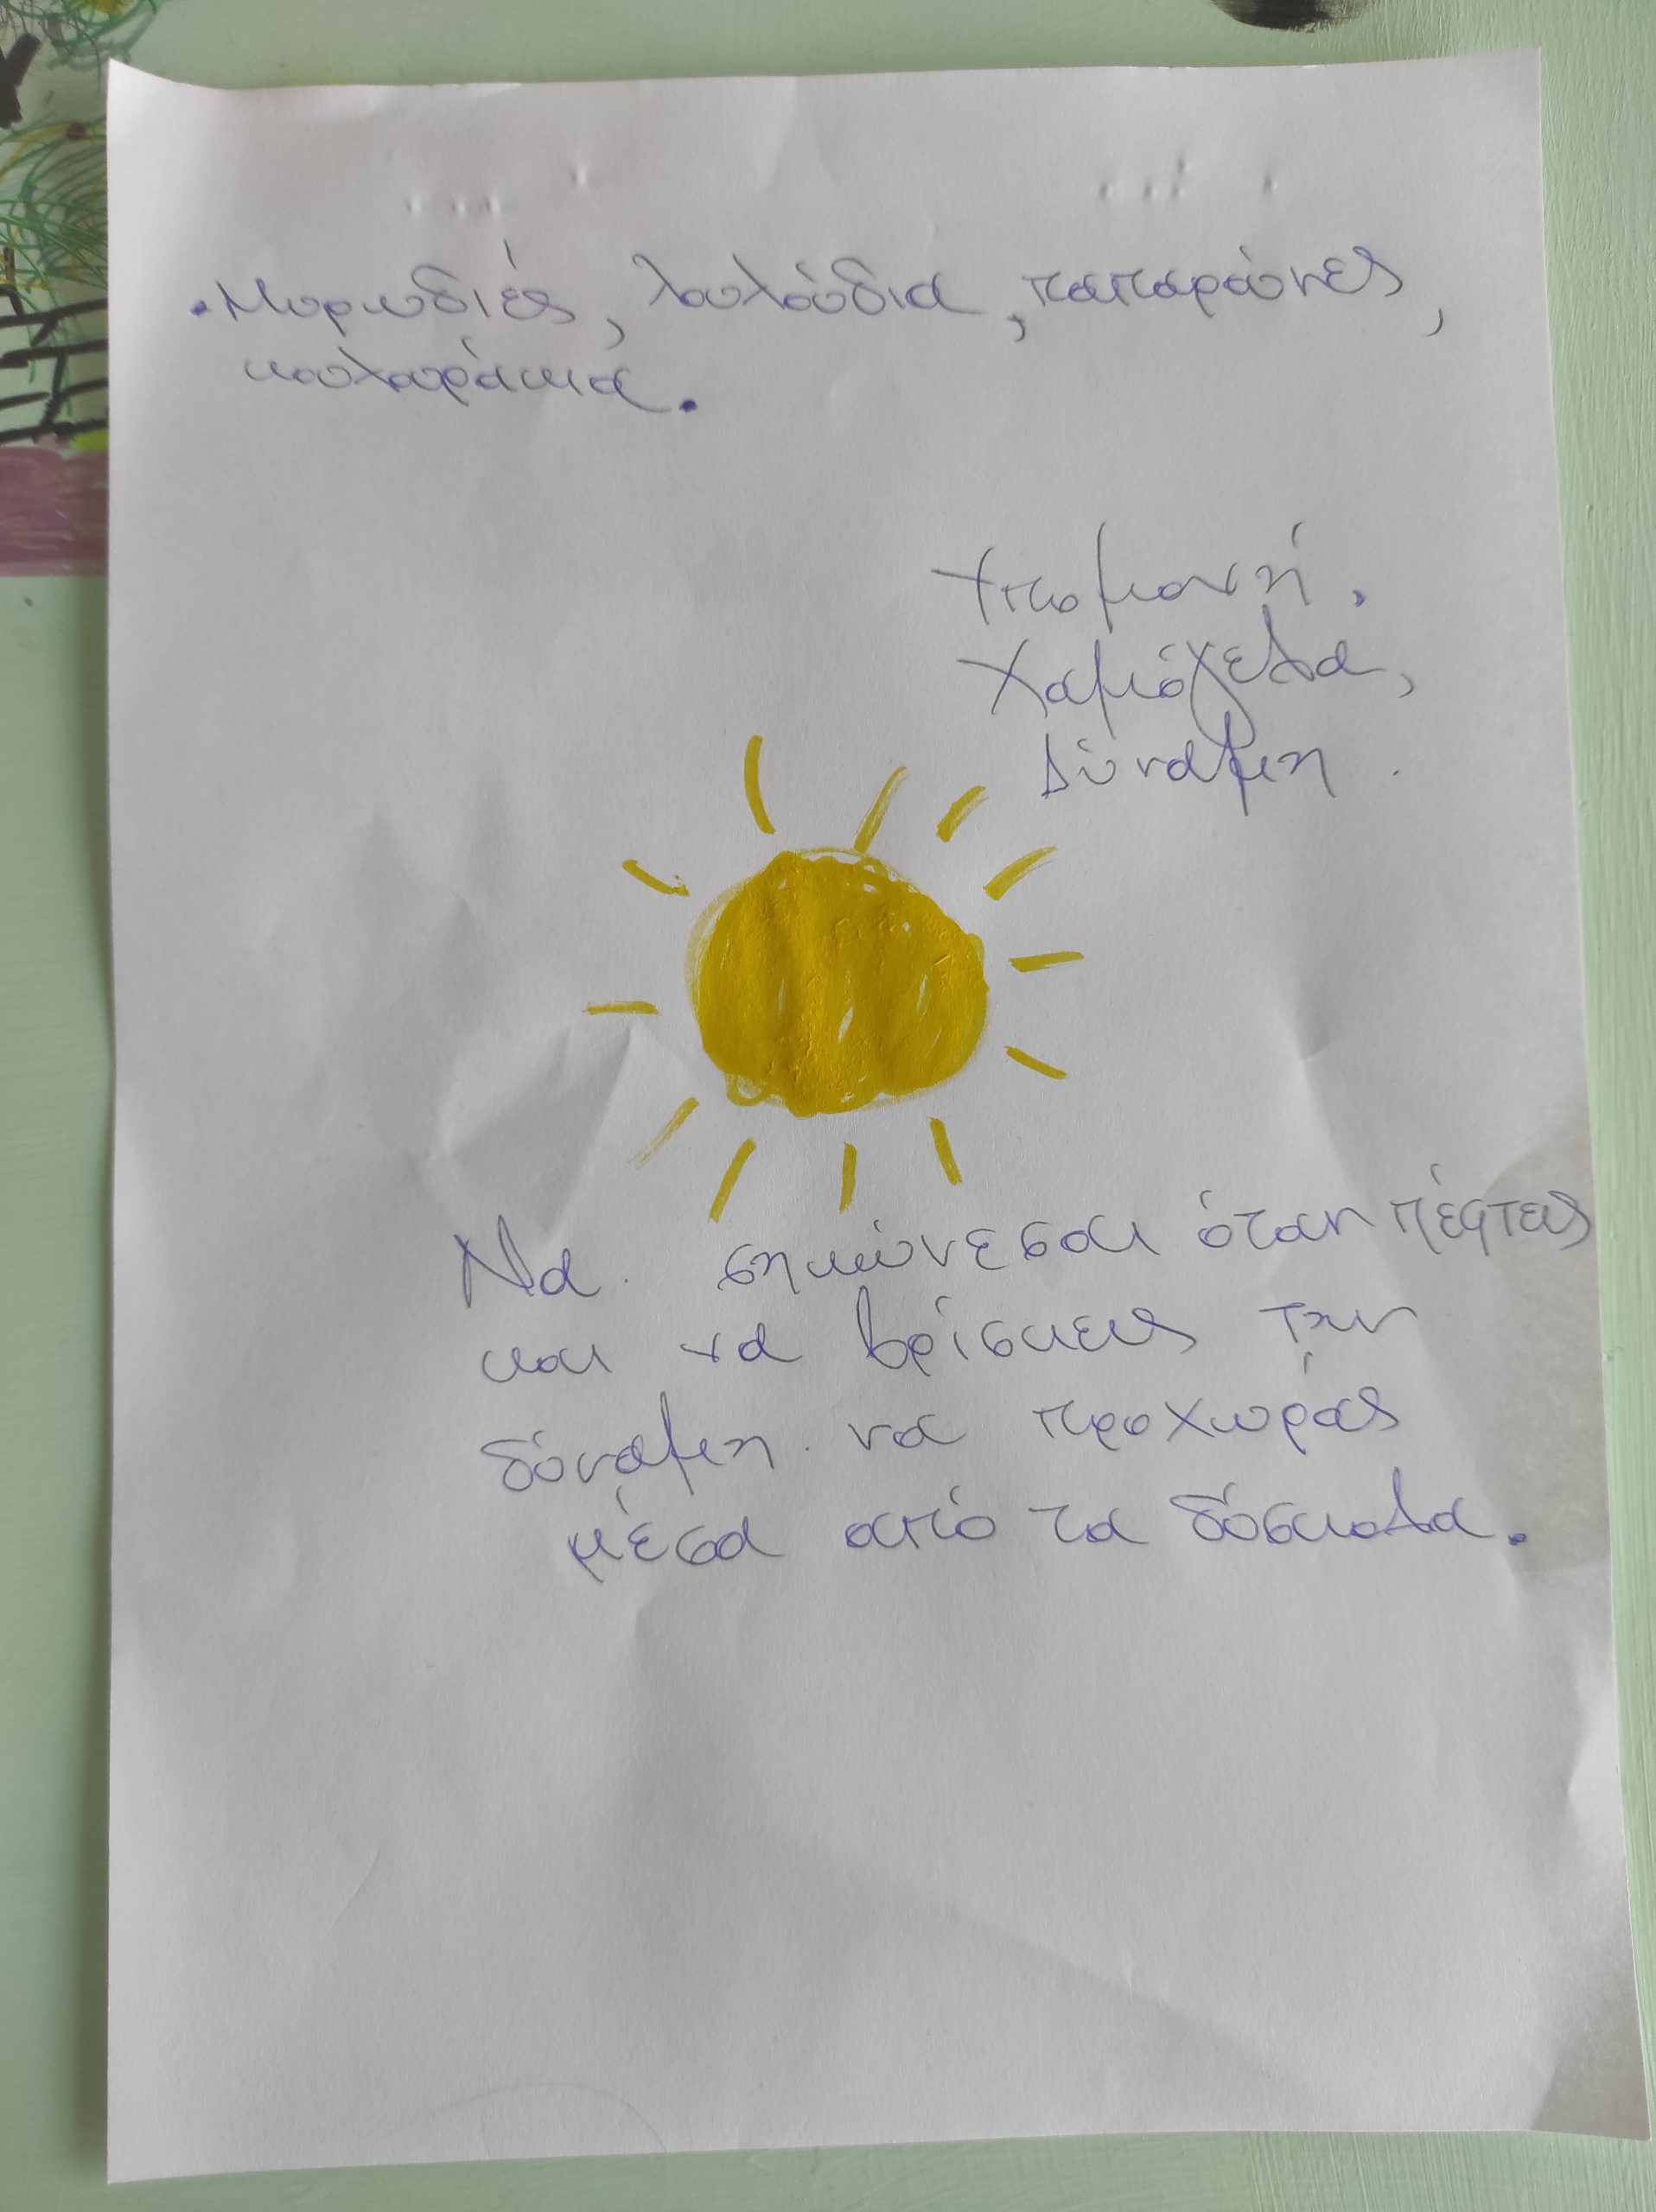 • Μυρωδιές, λουλούδια, παπαρούνες,
κουλουράκια.
Υπομονή,
Χαμόγελα,
Δύναμη.
Να σηκώνεσαι όταν πέφτεις
και να βρίσκεις την
δύναμη να προχωράς
μέσα από τα δύσκολα.